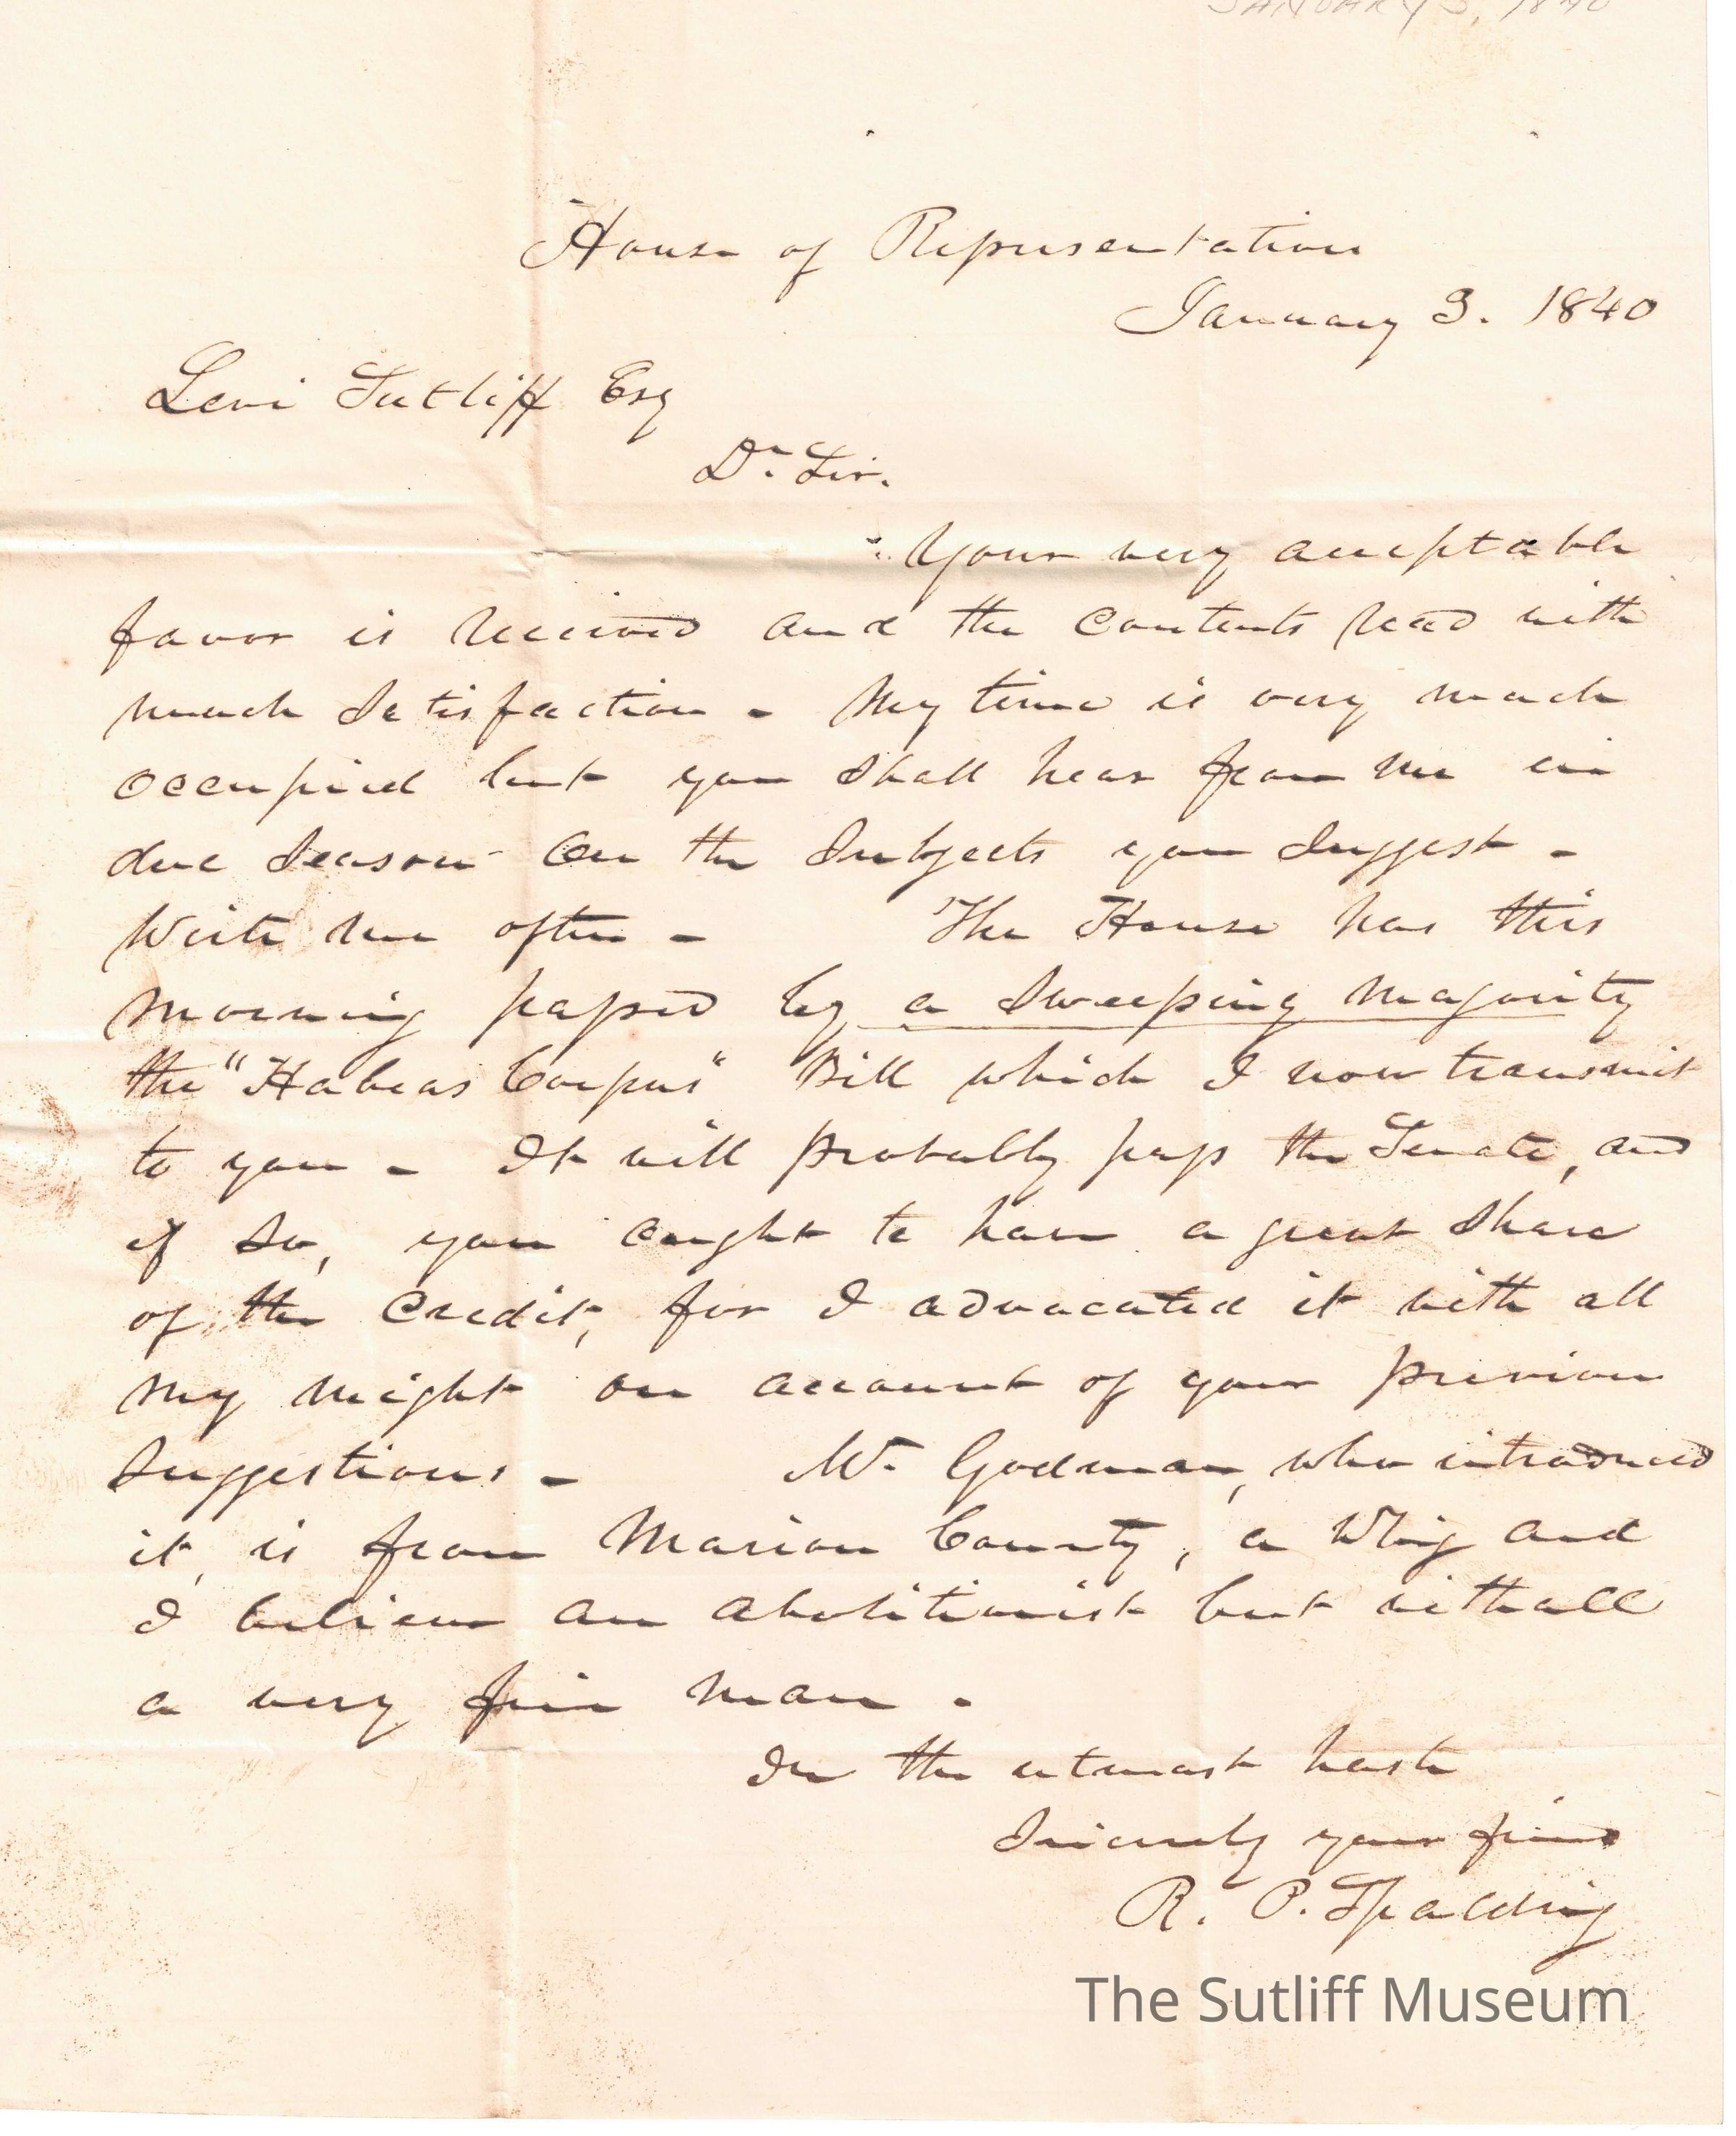 JANUARY 3, 1840
House of Representatives
January 3. 1840
Levi Sutliff Esq
Dr. Sir.
Your very acceptable
favor is received and the contents read with
much satisfaction - My time is very much
occupied but you shall hear from me in
due season on the subjects you suggest -
Write me often - The House has this
morning passed by a sweeping majority
the "Habeas Corpus" Bill which I now transmit
to you - It will probably pass the Senate, and
if so, you ought to have a great share
of the credit, for I advocated it with all
my might on account of your previous
suggestions - Mr. Godman, who introduced
it, is from Marion County, a Whig and
I believe an abolitionist but withall
a very fine man -
In the utmost haste
Sincerely your friend
R. P. Spalding
The Sutliff Museum